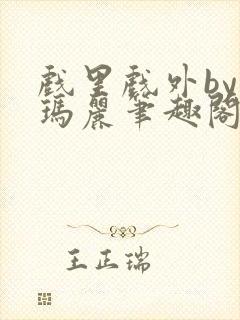 戲里戲外by
瑪麗筆趣閣
王正瑞